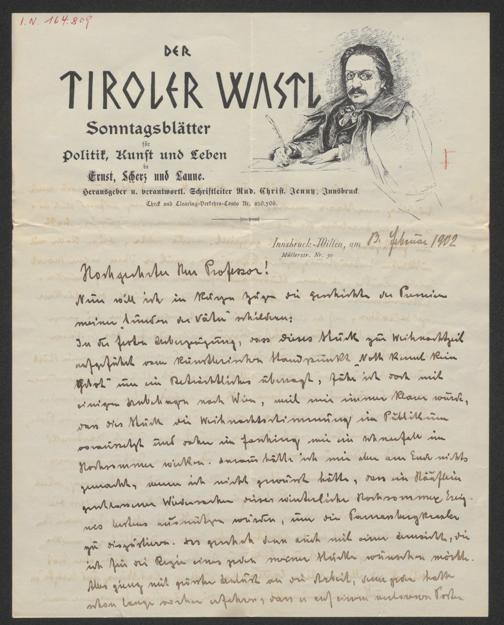 I.N. 164.809
DER
TIROLER WASTL
Sonntagsblätter
für
Politik, Kunst und Leben
in
Ernst, Scherz und Laune.
Herausgeber u. verantwortl. Schriftleiter Rud. Christ. Jenny, Innsbruck.
Check und Clearing-Verkehrs-Conto Nr.
Innsbruck-Wilten, am 13. Februar 1902
Müllerstr. Nr.
Hochgeehrter Herr Professor!
Nun will ich in kurzen Zügen die Geschichte der Premiere
meiner "Sünden der Väter" schildern:
In der festen Ueberzeugung, dass dieses Stück zur Weihnachtszeit
aufgeführt vom künstlerischen Standpunkt "Noth kennt kein
Gebot" um ein Beträchtliches überragt, fuhr ich doch mit
einigem Unbehagen nach Wien, weil mir immer klarer wurde,
dass das Stück die Weihnachtsstimmung im Publikum
voraussetzt und daher im Fasching wie ein Schneefall im
Hochsommer wirken. Daraus hätte ich mir aber am Ende nichts
gemacht, wenn ich nicht gewusst hätte, dass ein Häuflein
geschlossener Widersacher dieses winterliche Hochsommer
zu
ich für die Regie eines jeden meiner Stücke wünschen möchte.
Alles ging mit grösster Unlust an die Arbeit, denn jeder hatte
schon lange vorher erfahren, dass er auf einem verlorenen Posten